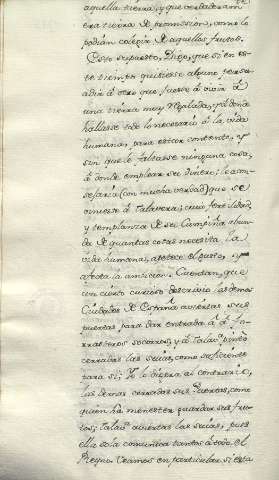 aquella tierra, y que verdaderam.
era tierra de promission, como lo
podian colegir de aquellos frutos.
Esto supuesto, Digo, que si en es-
te tiempo quisiese alguno persua-
dir á otro que fuese á vivir á
una tierra muy Regalada, y á donde
hallase todo lo necesario á la vida
humana, para estar contento, y
sin que le faltasse ninguna cosa,
á donde emplear sus Dinero: le acon-
sejaria (con mucha verdad) que se
viniese á Talavera; cuia fertilidad,
y templanza de su Campiña abun-
da de quantas cosas necesita la
vida humana, apetece el gusto, y
afecta la ambicion. Cuentan, que
un cierto curioso describio las demas
Ciudades de España abiertas sus
puertas para dar entrada á los fo-
rrasteros socorros, y á Talav.ª pintó
cerradas las suias, como suficiente
para si; Yo lo dixera al contrario,
las demas cerradas sus Puertas, como
quien ha menester guardar sus fru-
tos; Talav.ª abiertas las suias, pues
ella sola comunica tantos á todo el
Reyno. Veamos en particular si esta